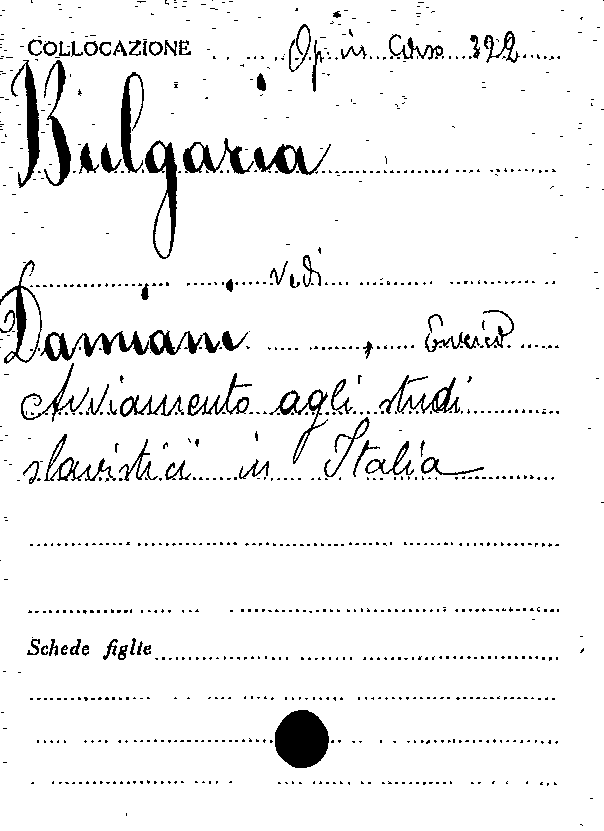 COLLOCAZIONE Op. in Corso 392
Bulgaria
vedi
Damiani, Enrico
Avviamento agli studi
slavistici in Italia
Schede figlie